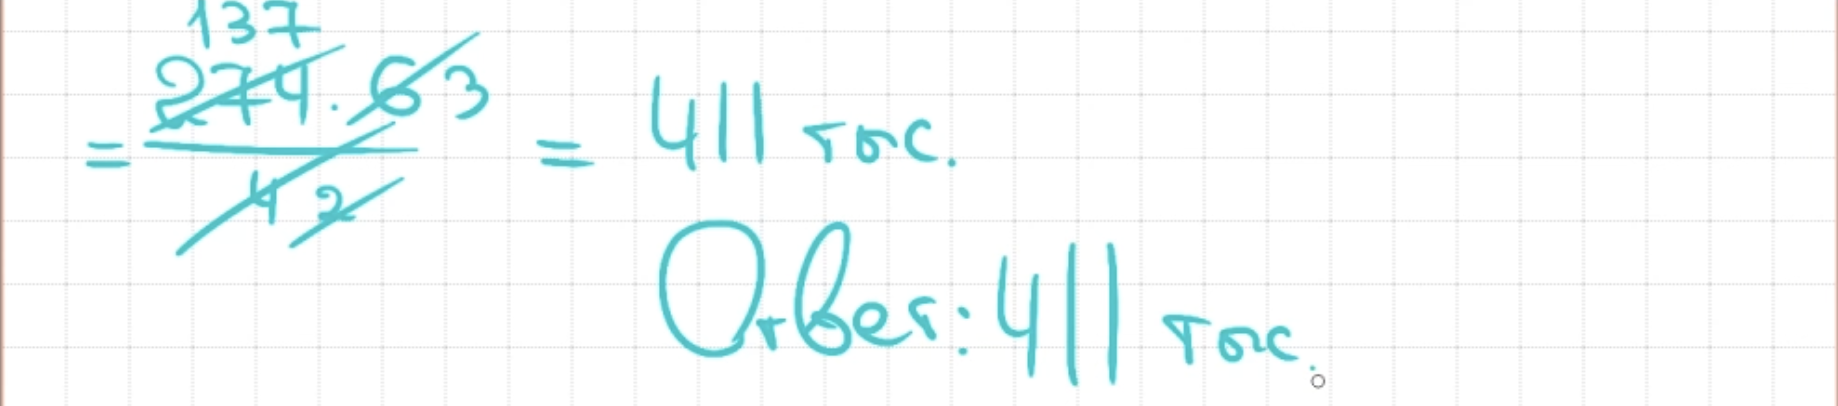 137
274 · 6 3
= ――― = 411 тыс.
4 2
Ответ: 411 тыс.